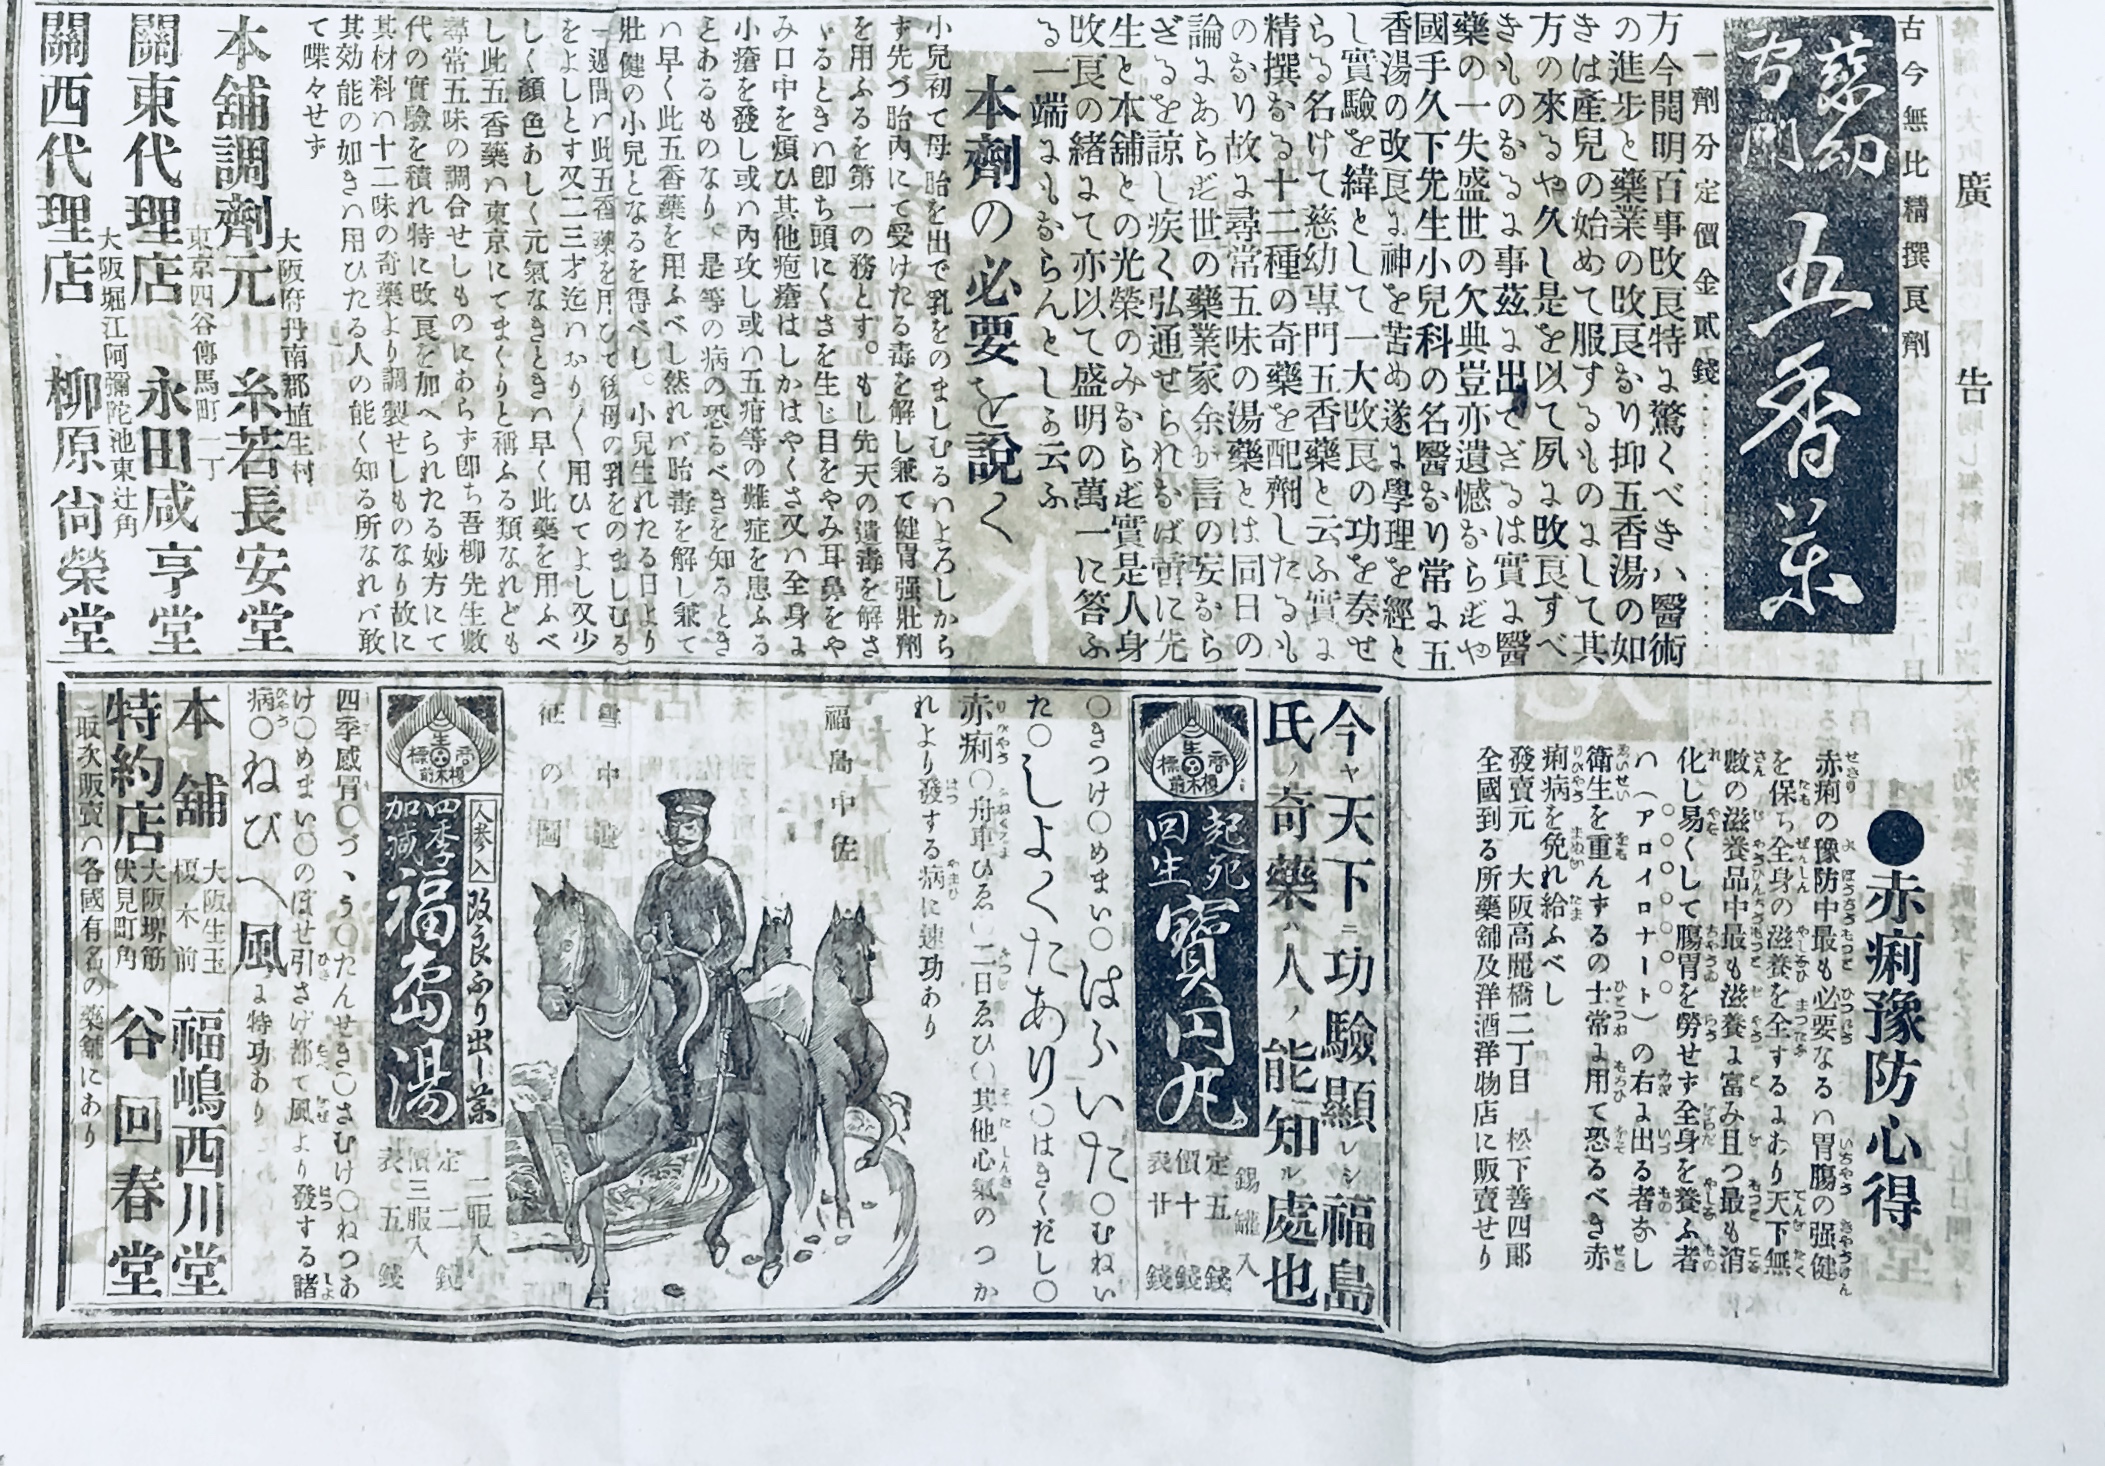 廣告
古今無比精撰良劑
慈幼専門 五香薬
一劑分定價金貳錢
方今開明百事改良特ニ驚くべきハ醫術
の進步と藥業の改良なり抑五香湯の如
きは產兒の始めて服するものにして其
方の來るや久し是を以て夙に改良すべ
きものなるに事茲に出でざるは實に醫
藥の一失盛世の欠典豈亦遺憾ならずや
國手久下先生小兒科の名醫なり常に五
香湯の改良に神を苦め遂に學理を經と
し實驗を緯として一大改良の功を奏せ
らる名けて慈幼專門五香藥と云ふ實に
精撰なる十二種の奇藥を配劑したるも
のなり故に尋常五味の湯藥とは同日の
論にあらず世の藥業家余が言の妄なら
ざるを諒し疾く弘通せられなば啻に先
生と本舖との光榮のみならず實是人身
改良の緒にて亦以て盛明の萬一に答ふ
る一端にもならんとしか云ふ
本劑の必要を說く
小兒初て母胎を出で乳をのましむるハよろしから
ず先づ胎內にて受けたる毒を解し兼て健胃强壯劑
を用ふるを第一の務とす。もし先天の遺毒を解さ
ゞるときハ卽ち頭にくさを生じ目をやみ耳鼻をや
み口中を煩ひ其他疱瘡はしかはやくさ又ハ全身に
小瘡を發し或ハ內攻し或ハ五疳等の難症を患ふる
とあるものなり、是等の病の恐るべきを知るとき
ハ早く此五香藥を用ふべし然れバ胎毒を解し兼て
壯健の小兒となるを得べし。小兒生れたる日より
一週間ハ此五香藥を用ひて後母の乳をのましむる
をよしとす又二三才迄ハおり〱用ひてよし又少
しく顏色あしく元氣なきときハ早く此藥を用ふべ
し此五香藥ハ東京にてまくりと稱ふる類なれども
尋常五味の調合せしものにあらず卽ち吾柳先生數
代の實驗を積れ特に改良を加へられたる妙方にて
其材料ハ十二味の奇藥より調製せしものなり故に
其効能の如きハ用ひたる人の能く知る所なれバ敢
て喋々せず
大阪府丹南郡埴生村
本舖調劑元 糸若長安堂
東京四谷傳馬町一丁
關東代理店 永田咸亨堂
大阪堀江阿彌陀池東辻角
關西代理店 柳原尙榮堂
●赤痢豫防心得
赤痢の豫防中最も必要なるハ胃膓の强健
を保ち全身の滋養を全するにあり天下無
數の滋養品中最も滋養に富み且つ最も消
化し易くして膓胃を勞せず全身を養ふ者
ハ(アロイロナート)の右に出る者なし
衛生を重んずるの士常に用て恐るべき赤
痢病を免れ給ふべし
發賣元 大阪高麗橋二丁目 松下善四郎
全國到る所藥舖及洋酒洋物店に販賣せり
今ヤ天下ニ功驗顯レシ福島
氏ノ奇藥ハ人ノ能知ル處也
商標 生玉 榎木前
起死回生 寶円丸
錫罐入
定五錢
價十錢
表廿錢
〇きつけ〇めまい〇はらいた〇むねい
た〇しよくたあり〇はきくだし〇
赤痢〇舟車ひゑ〇二日ゑひ〇其他心氣のつか
れより發する病に速功あり
福島中佐
雪中
征の圖
商標 生玉 榎木前
人參入 改良ふり出し薬
四季加減 福島湯
定二錢 二服入
價三服入
表五錢
四季感冒〇づゝう〇たんせき〇さむけ〇ねつあ
け〇めまい〇のぼせ引さげ都て風より發する諸
病〇ねびへ風に特功あり
本舖 大阪生玉榎木前 福嶋西川堂
特約店 大阪堺筋伏見町角 谷回春堂
取次販賣ハ各國有名の藥舖にあり